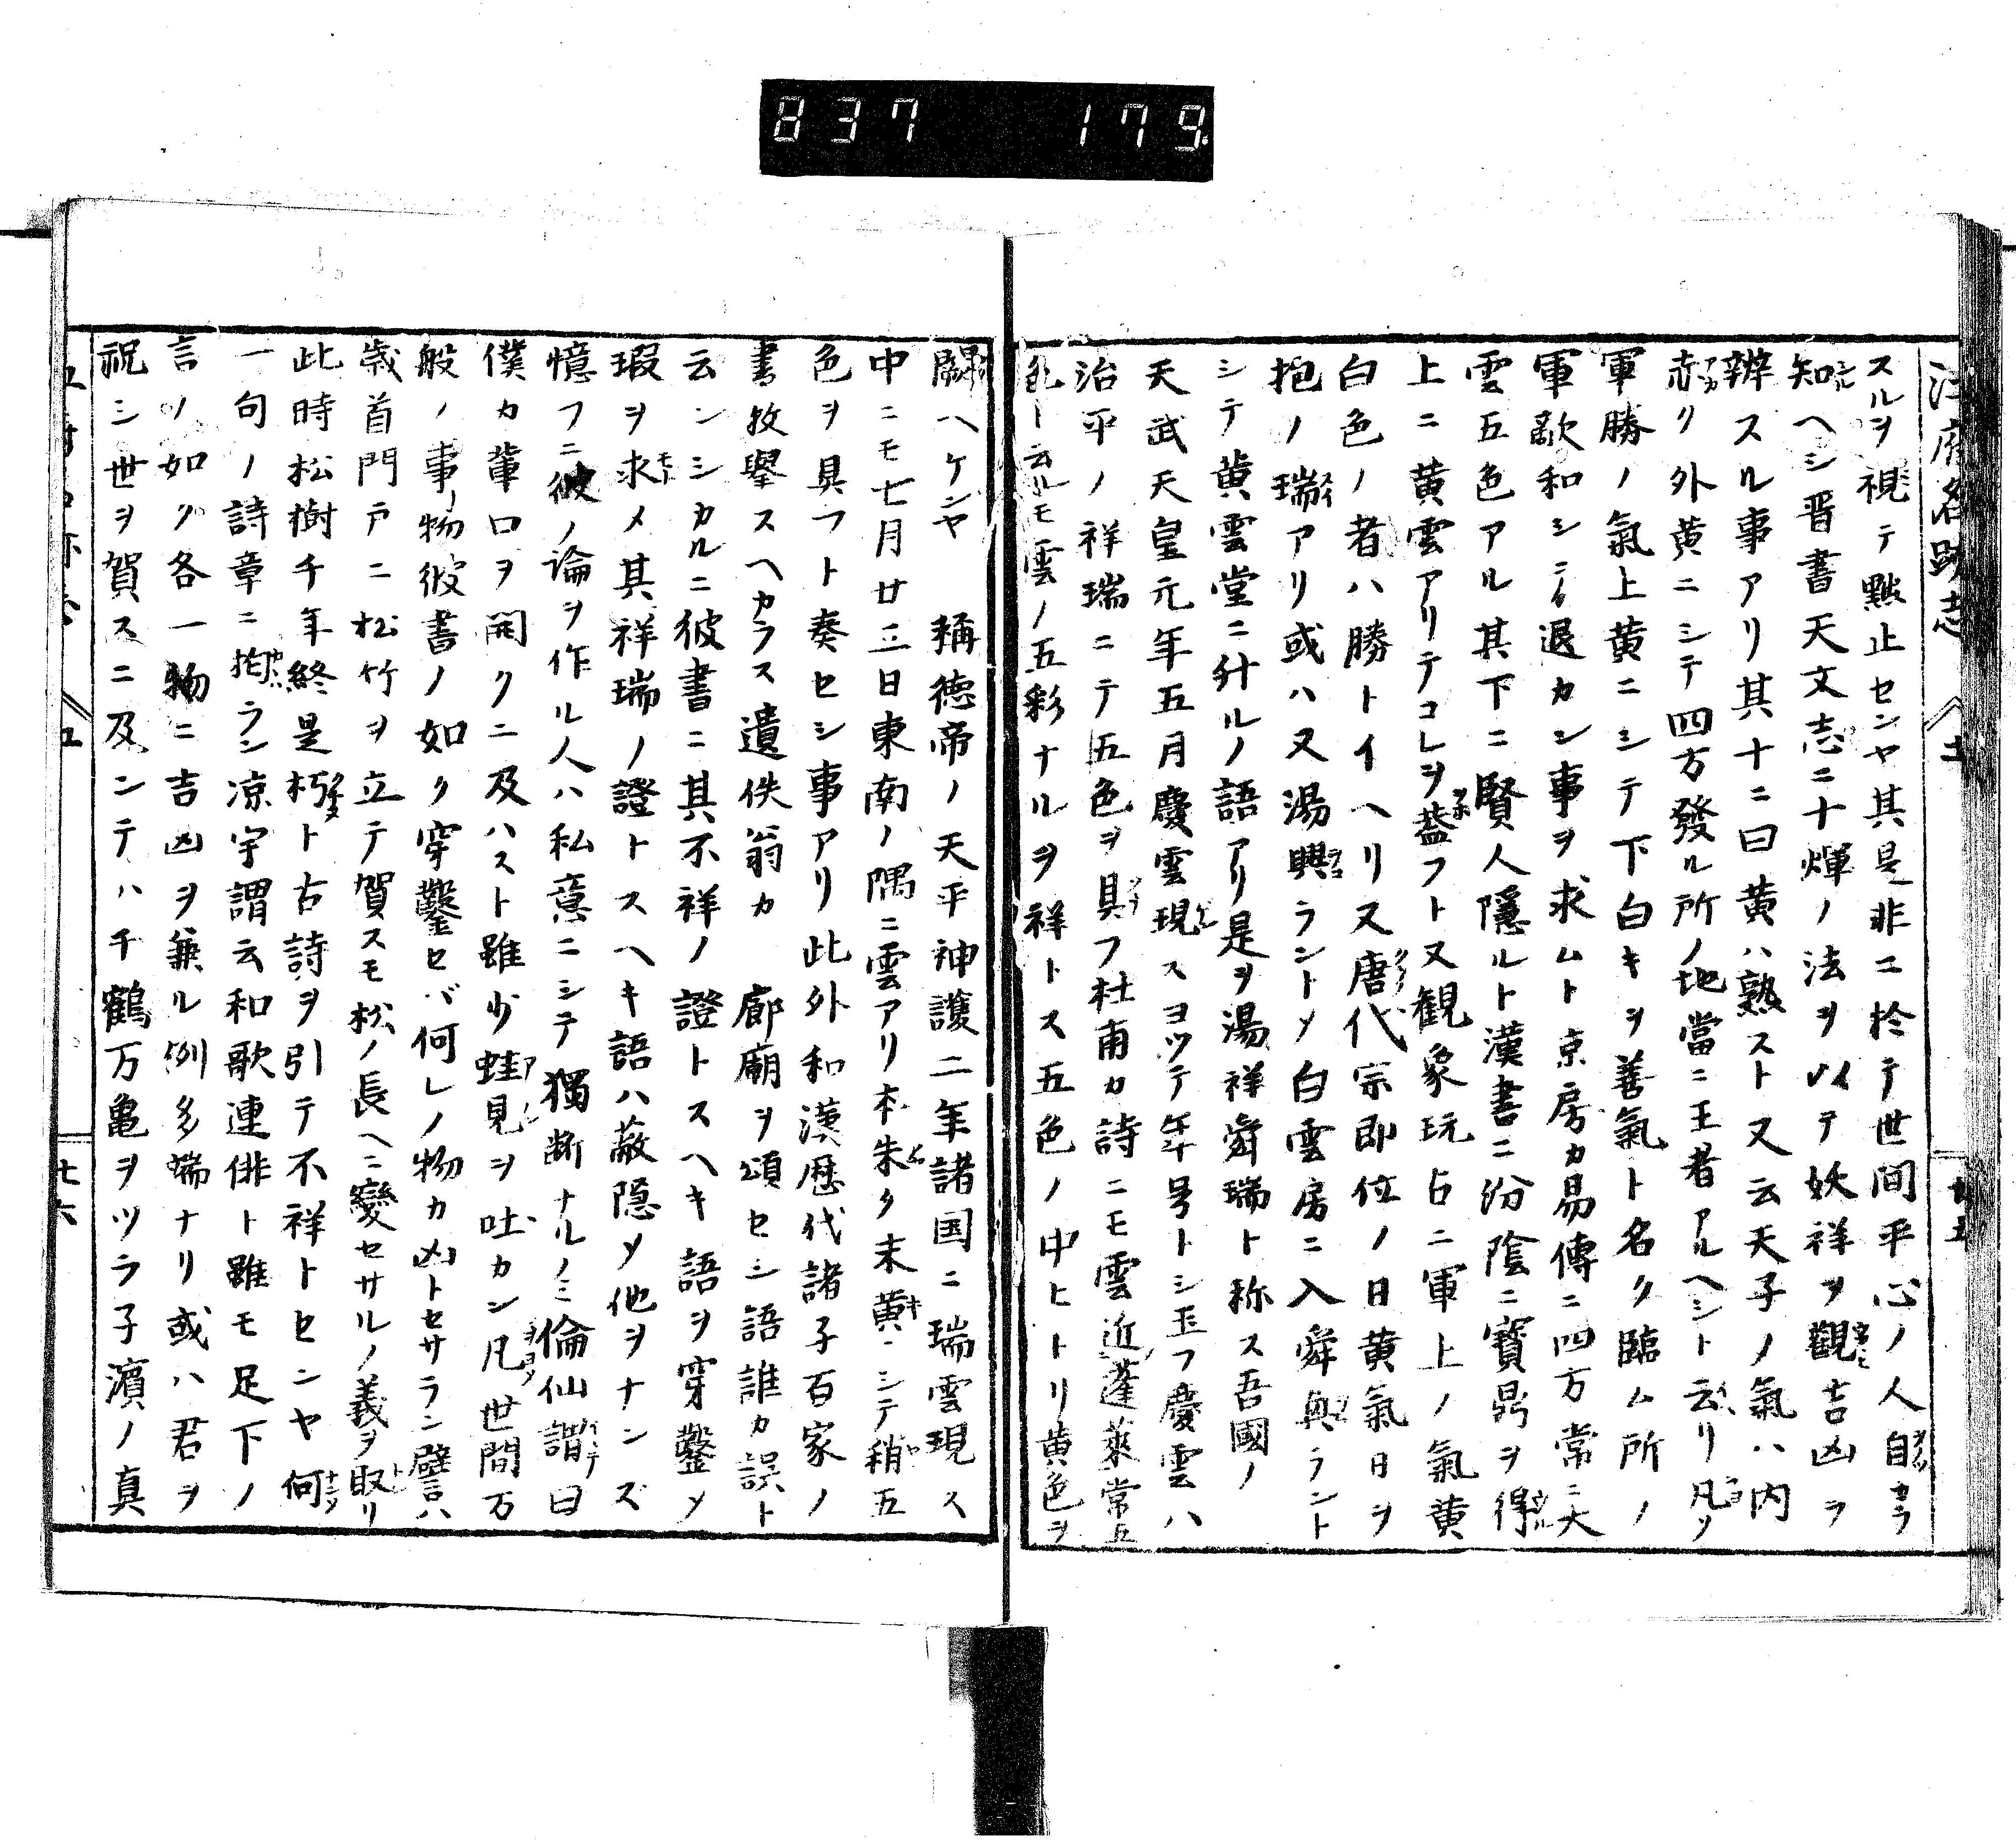 837 179
江府名跡志
スルヲ視テ黙止センヤ其是非ニ於テ世間平心ノ人自カラ
知ヘシ晋書天文志ニ十煇ノ法ヲ以テ妖祥ヲ觀吉凶ヲ
辨スル事アリ其十ニ曰黄ハ熟スト又云天子ノ氣ハ内
赤リ外黄ニシテ四方發ル所ノ地當ニ王者アルヘシト云リ凡ソ
軍勝ノ氣上黄ニシテ下白キヲ善氣ト名ク臨ム所ノ
軍敵和シテ退カン事ヲ求ムト京房カ易傳ニ四方常ニ大
雲五色アル其下ニ賢人隱ルト漢書ニ汾陰ニ寳鼎ヲ得
上ニ黄雲アリテコレヲ蓋フト又観象玩占ニ軍上ノ氣黄
白色ノ者ハ勝トイヘリ又唐代宗即位ノ日黄氣日ヲ
抱ノ瑞アリ或ハ又湯興ラントメ白雲房ニ入舜興ラント
シテ黄雲堂ニ升ルノ語アリ是ヲ湯祥舜瑞ト称ス吾國ノ
天武天皇元年五月慶雲現スヨツテ年号トシ玉フ慶雲ハ
治平ノ祥瑞ニテ五色ヲ具フ杜甫カ詩ニモ雲近蓬萊常五
色ト云ルモ雲ノ五彩ナルヲ祥トス五色ノ中ヒトリ黄色ヲ
闕ヘケンヤ 稱徳帝ノ天平神護二年諸国ニ瑞雲現ス
中ニモ七月廿三日東南ノ隅ニ雲アリ本朱ク末黄ニシテ稍五
色ヲ具フト奏セシ事アリ此外和漢歴代諸子百家ノ
書枚擧スヘカラス遺佚翁カ 廊廟ヲ頌セシ語誰カ誤ト
云ンシカルニ彼書ニ其不祥ノ證トスヘキ語ヲ穿鑿メ
瑕ヲ求メ其祥瑞ノ證トスヘキ語ハ蔽隠メ他ヲナンズ
憶フニ彼ノ論ヲ作ル人ハ私意ニシテ獨断ナルノミ倫仙謂曰
僕カ輩口ヲ開クニ及ハスト雖少蛙見ヲ吐カン凡世間万
般ノ事物彼書ノ如ク穿鑿セバ何レノ物カ凶トセサラン譬ハ
歳首門戸ニ松竹ヲ立テ賀スモ松ノ長ヘニ變セサルノ義ヲ取リ
此時松樹千年終是朽ト古詩ヲ引テ不祥トセンヤ何
一句ノ詩章ニ拘ラン凉宇謂云和歌連俳ト雖モ足下ノ
言ノ如ク各一物ニ吉凶ヲ兼ル例多端ナリ或ハ君ヲ
祝シ世ヲ賀スニ及ンテハ千鶴万亀ヲツラ子濱ノ真